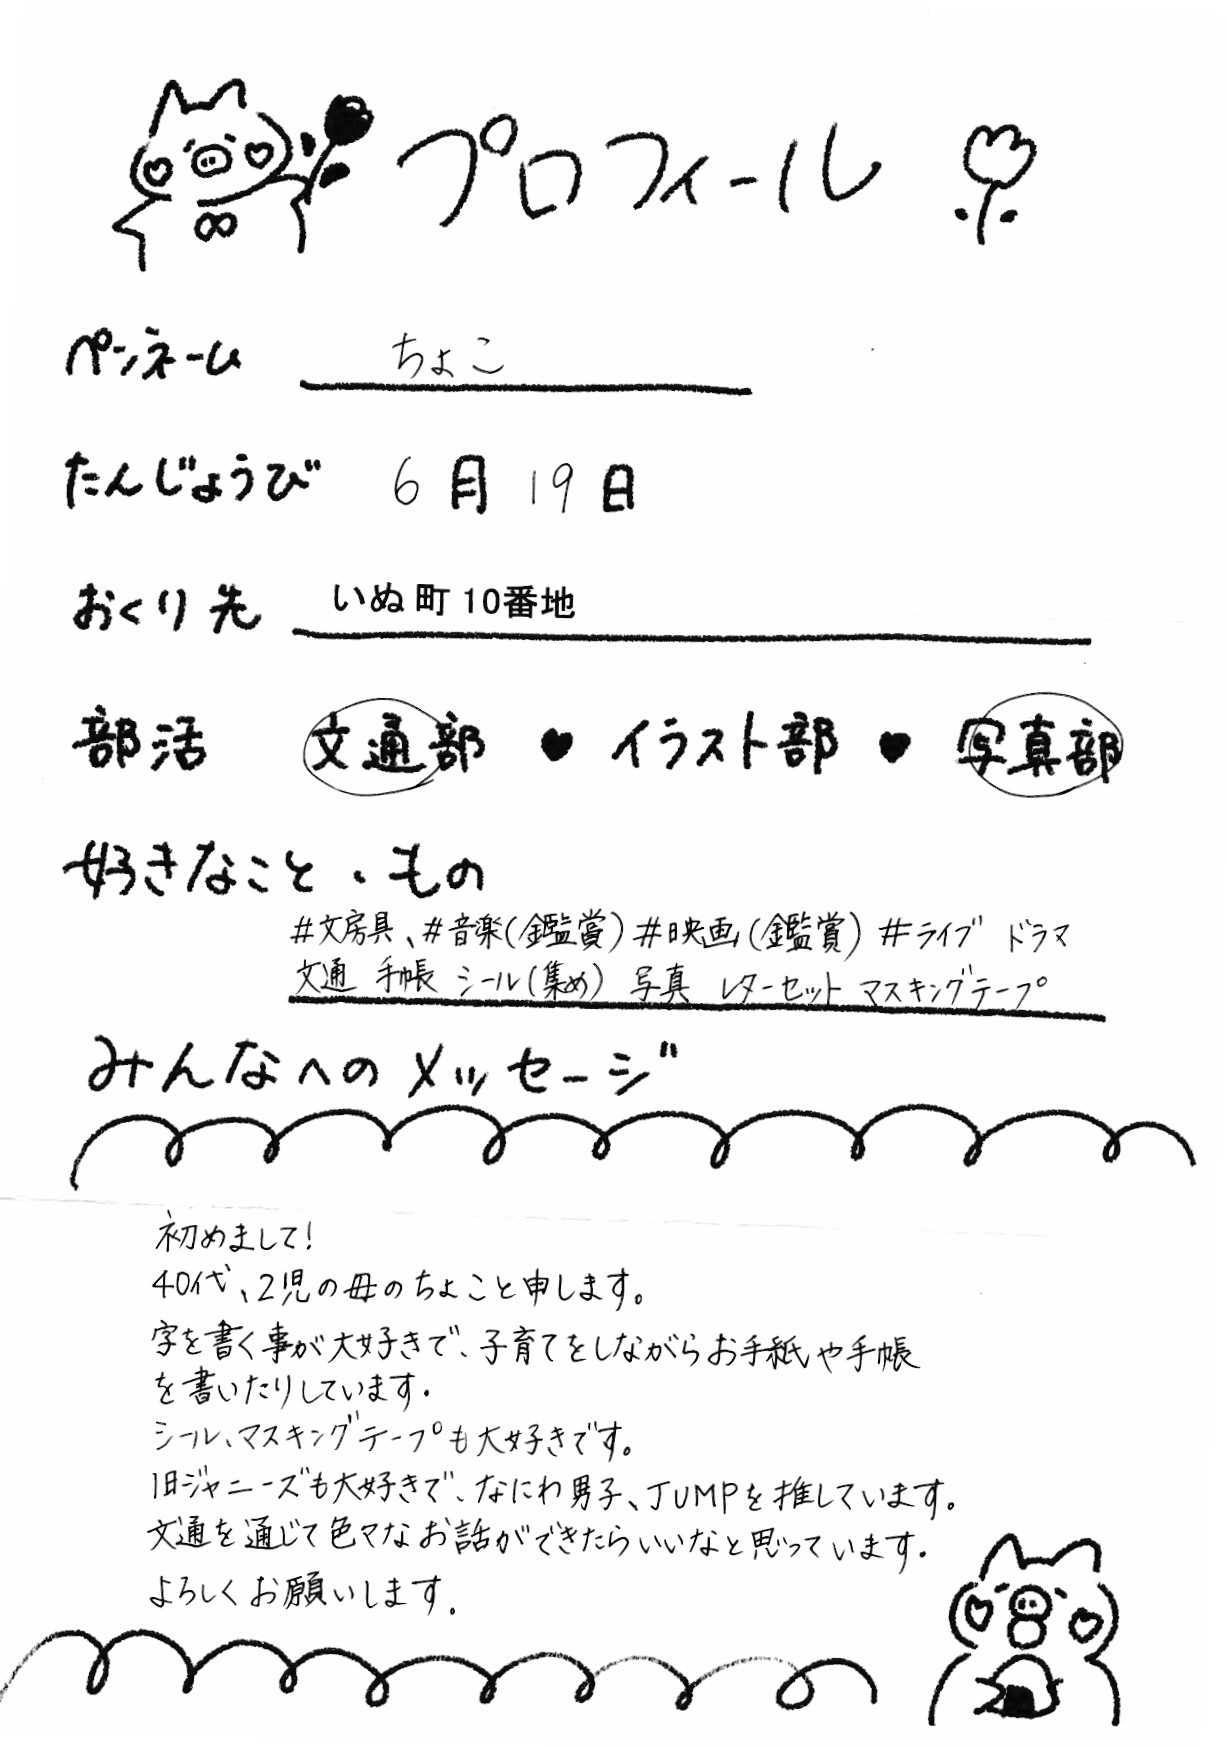 プロフィール
ペンネーム ちょこ
たんじょうび 6月19日
おくり先 いぬ町10番地
部活 文通部 ♥ イラスト部 ♥ 写真部
好きなこと・もの
#文房具、#音楽(鑑賞)#映画(鑑賞) #ライブ ドラマ
文通 手帳 シール(集め) 写真 レターセット マスキングテープ
みんなへのメッセージ
初めまして!
40代、2児の母のちょこと申します。
字を書く事が大好きで、子育てをしながらお手紙や手帳
を書いたりしています。
シール、マスキングテープも大好きです。
旧ジャニーズも大好きで、なにわ男子、JUMPを推しています。
文通を通じて色々なお話ができたらいいなと思っています。
よろしくお願いします。